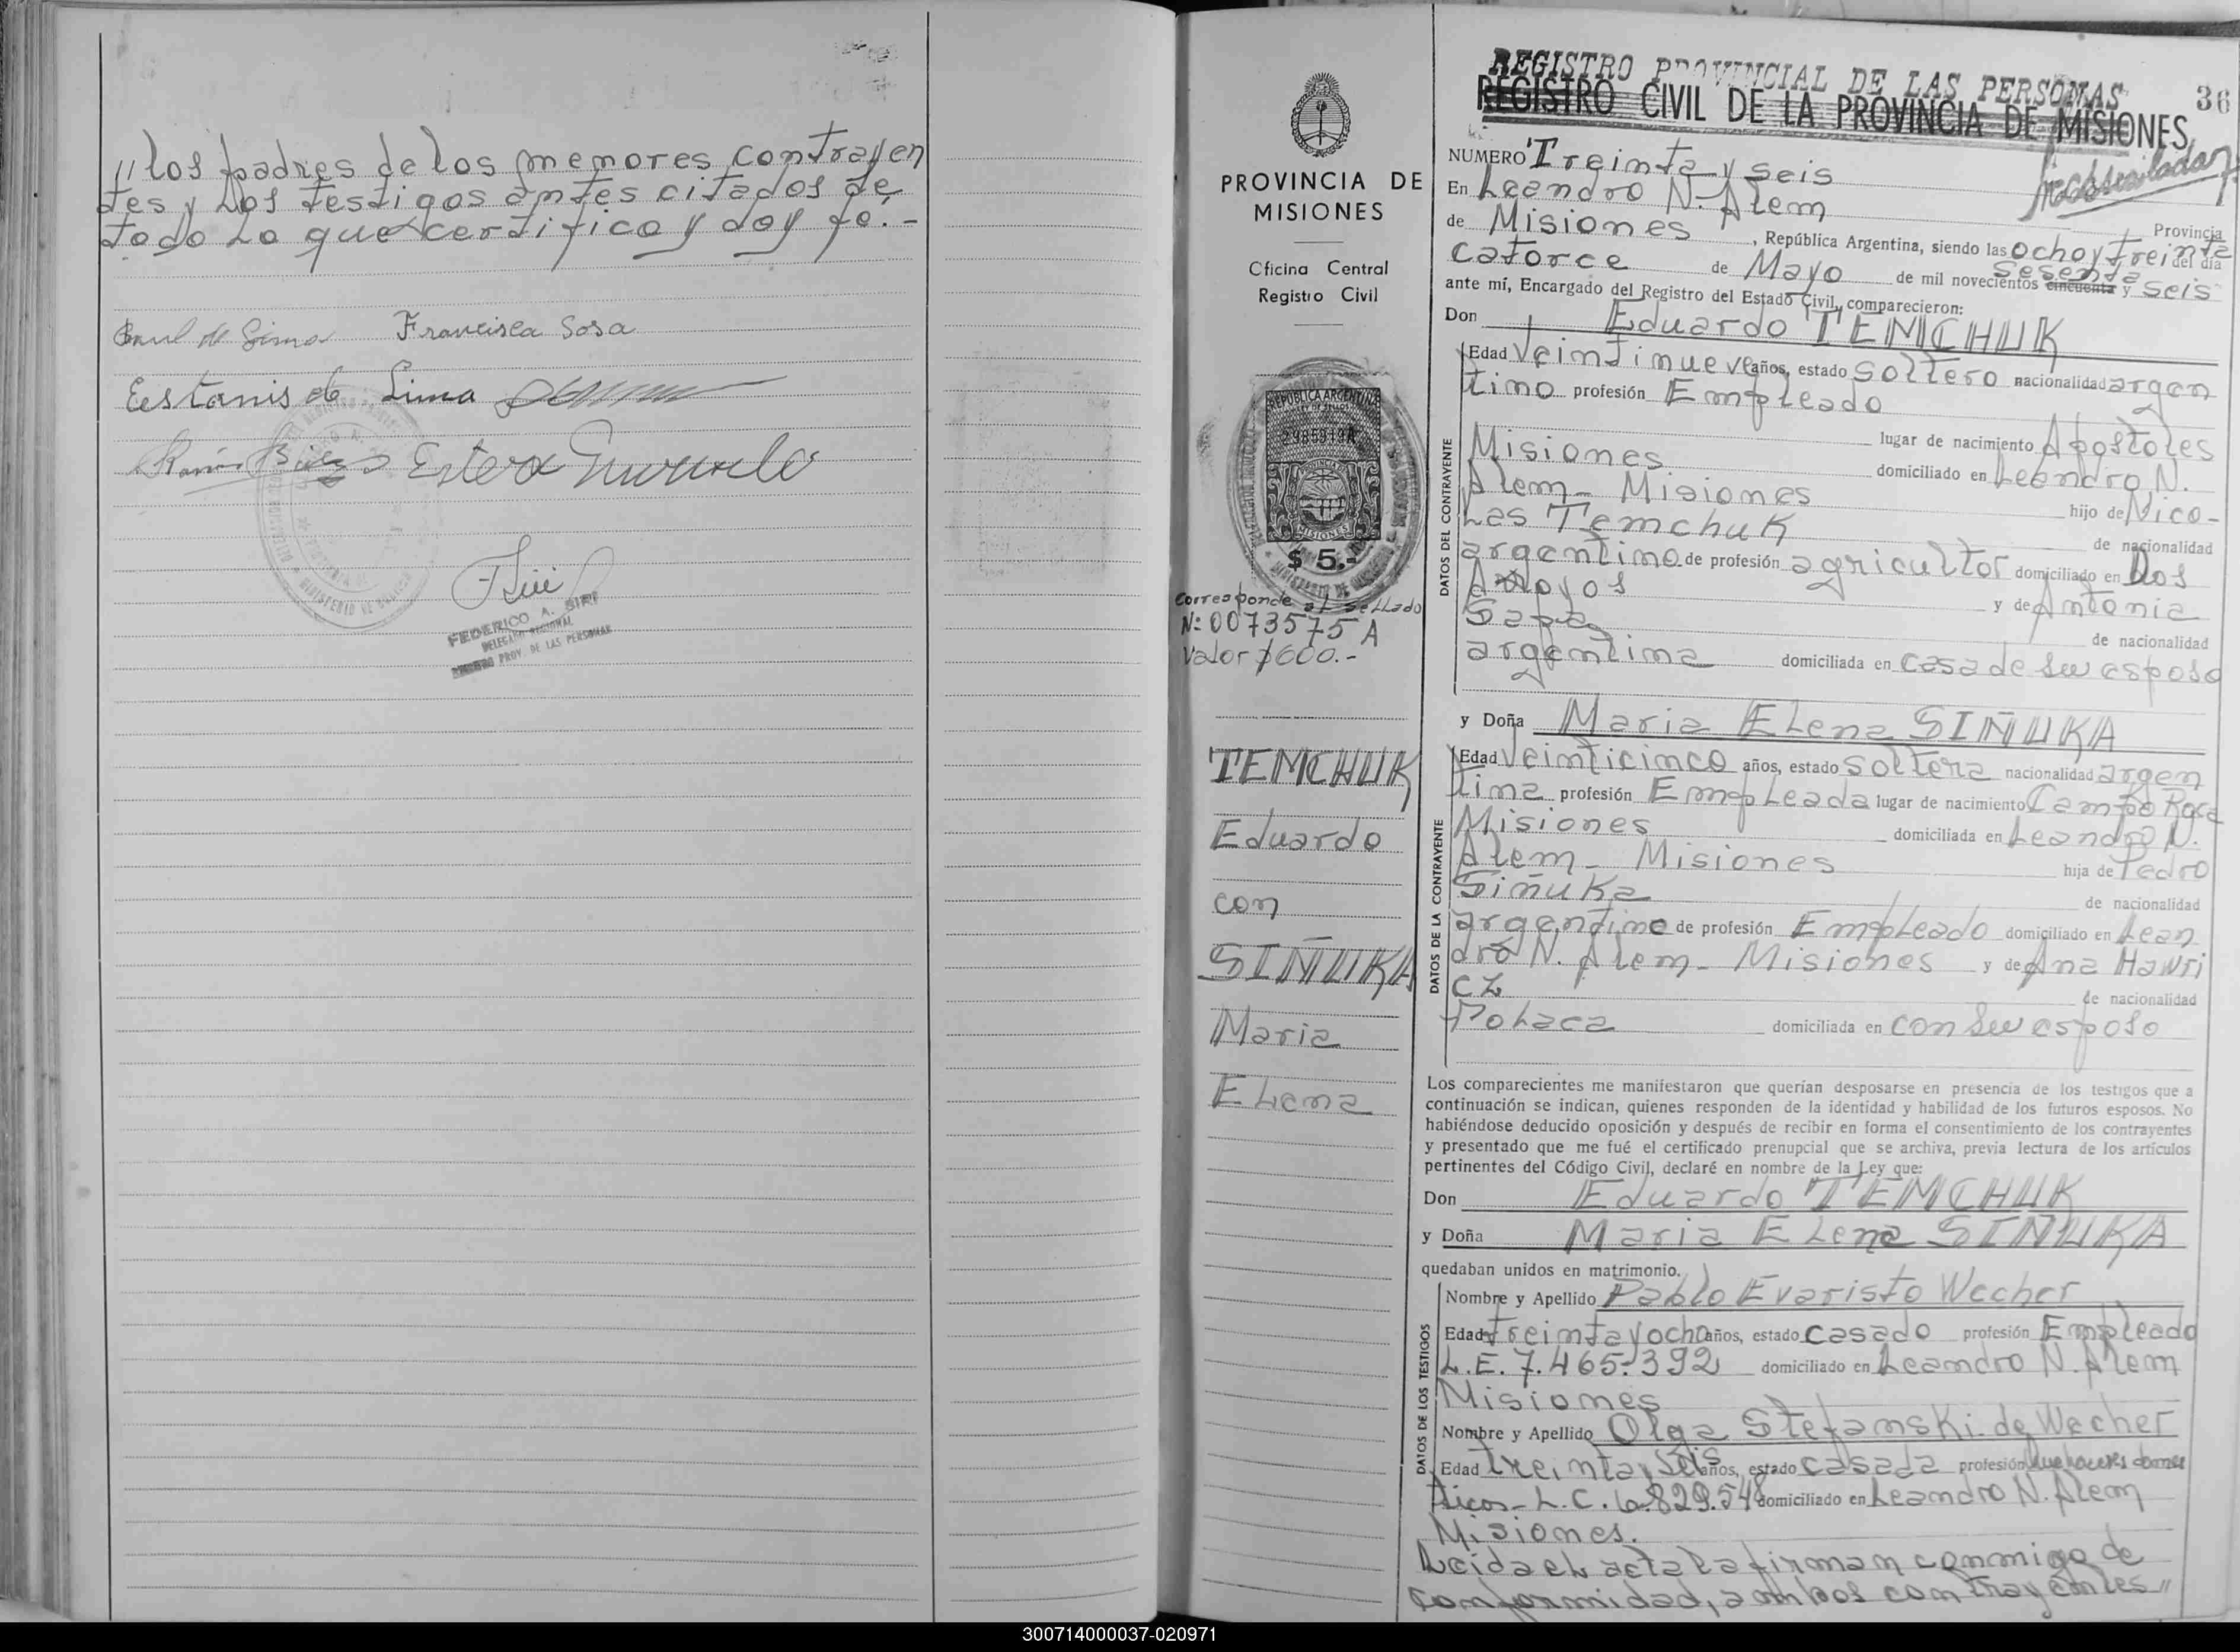 " los padres de los menores contrayen
tes y los testigos antes citados de
todo lo que certifico y doy fe.-
Francisca Sosa
Estanis de Lima
FEDERICO A. SIRI
DELEGADO REGIONAL
REGISTRO PROV. DE LAS PERSONAS
PROVINCIA DE
MISIONES
Oficina Central
Registro Civil
REPUBLICA ARGENTINA
MISIONES
$ 5.-
Corresponde al sellado
Nº 0073575 A
Valor $600.-
TEMCHUK
Eduardo
con
SIÑUKA
Maria
Elena
REGISTRO PROVINCIAL DE LAS PERSONAS
REGISTRO CIVIL DE LA PROVINCIA DE MISIONES
36
NUMERO Treinta y seis
En Leandro N. Alem
Provincia
de Misiones, República Argentina, siendo las ocho y treinta del día
catorce de Mayo de mil novecientos cincuenta sesenta y seis
ante mí, Encargado del Registro del Estado Civil, comparecieron:
Don Eduardo TEMCHUK
DATOS DEL CONTRAYENTE
Edad Veintinueve años, estado soltero nacionalidad argen
tino profesión Empleado
lugar de nacimiento Apostoles
Misiones domiciliado en Leandro N.
Alem - Misiones hijo de Nico-
las Temchuk de nacionalidad
argentino de profesión agricultor domiciliado en Dos
Arroyos y de Antonia
Sapa de nacionalidad
argentina domiciliada en casa de su esposo
y Doña Maria Elena SIÑUKA
DATOS DE LA CONTRAYENTE
Edad Veinticinco años, estado soltera nacionalidad argen
tina profesión Empleada lugar de nacimiento Campo Roca
Misiones domiciliada en Leandro N.
Alem - Misiones hija de Pedro
Siñuka de nacionalidad
argentino de profesión Empleado domiciliado en Lean
dro N. Alem - Misiones y de Ana Hawri
cz de nacionalidad
Polaca domiciliada en con su esposo
Los comparecientes me manifestaron que querían desposarse en presencia de los testigos que a
continuación se indican, quienes responden de la identidad y habilidad de los futuros esposos. No
habiéndose deducido oposición y después de recibir en forma el consentimiento de los contrayentes
y presentado que me fué el certificado prenupcial que se archiva, previa lectura de los artículos
pertinentes del Código Civil, declaré en nombre de la Ley que:
Don Eduardo TEMCHUK
y Doña Maria Elena SIÑUKA
quedaban unidos en matrimonio.
DATOS DE LOS TESTIGOS
Nombre y Apellido Pablo Evaristo Wecher
Edad treinta y ocho años, estado casado profesión Empleado
L.E. 7.465.392 domiciliado en Leandro N. Alem
Misiones
Nombre y Apellido Olga Stefanski de Wecher
Edad treinta y seis años, estado casada profesión quehaceres domes
ticos - L.C. 6.829.548 domiciliado en Leandro N. Alem
Misiones.
Leida el acta la firman conmigo de
conformidad, ambos contrayentes "
300714000037-020971